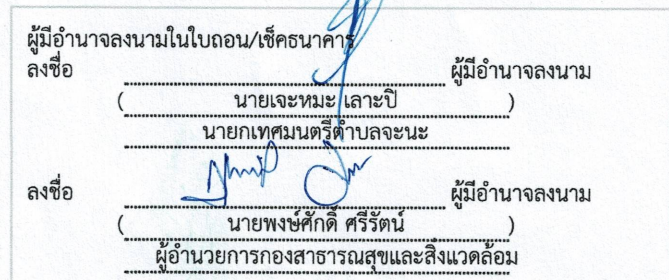 ผู้มีอำนาจลงนามในใบถอน/เช็คธนาคาร
ลงชื่อ ผู้มีอำนาจลงนาม
( นายเจะหมะ เลาะปิ )
นายกเทศมนตรีตำบลจะนะ
ลงชื่อ ผู้มีอำนาจลงนาม
( นายพงษ์ศักดิ์ ศรีรัตน์ )
ผู้อำนวยการกองสาธารณสุขและสิ่งแวดล้อม